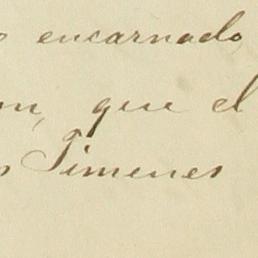 encarnado
que el
Timenes